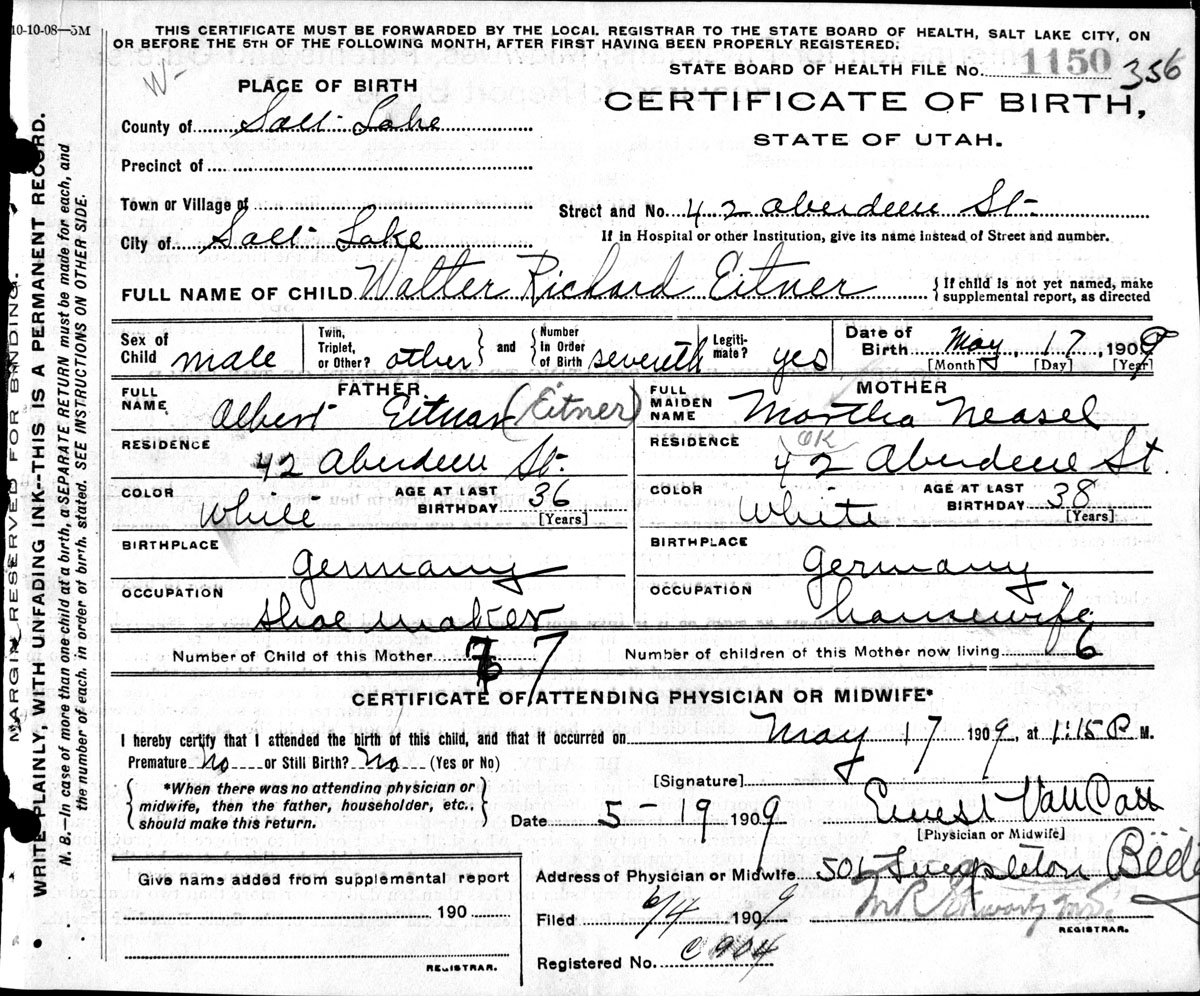 10-10-08—5M
THIS CERTIFICATE MUST BE FORWARDED BY THE LOCAL REGISTRAR TO THE STATE BOARD OF HEALTH, SALT LAKE CITY, ON
OR BEFORE THE 5TH OF THE FOLLOWING MONTH, AFTER FIRST HAVING BEEN PROPERLY REGISTERED.
W-
STATE BOARD OF HEALTH FILE No. 1150 356
PLACE OF BIRTH
CERTIFICATE OF BIRTH,
STATE OF UTAH.
County of Salt Lake
Precinct of
Town or Village of
Street and No. 42 Aberdeen St.
City of Salt Lake
If in Hospital or other Institution, give its name instead of Street and number.
FULL NAME OF CHILD Walter Richard Eitner
{If child is not yet named, make
supplemental report, as directed
Sex of Child male
Twin, Triplet, or Other? other
and
Number in Order of Birth seventh
Legitimate? yes
Date of Birth May, 17, 1909
[Month] [Day] [Year]
FATHER
FULL NAME Albert Eitnar (Eitner)
RESIDENCE 42 Aberdeen St.
COLOR White
AGE AT LAST BIRTHDAY 36
[Years]
BIRTHPLACE Germany
OCCUPATION Shoe maker
MOTHER
FULL MAIDEN NAME Martha Neasel
OK
RESIDENCE 42 Aberdeen St
COLOR White
AGE AT LAST BIRTHDAY 38
[Years]
BIRTHPLACE Germany
OCCUPATION housewife
Number of Child of this Mother 7
Number of children of this Mother now living 6
CERTIFICATE OF ATTENDING PHYSICIAN OR MIDWIFE*
I hereby certify that I attended the birth of this child, and that it occurred on May 17 1909, at 1:15 P M.
Premature No or Still Birth? No (Yes or No)
*When there was no attending physician or
midwife, then the father, householder, etc.,
should make this return.
[Signature]
Date 5-19 1909
[Physician or Midwife]
Give name added from supplemental report
190
REGISTRAR.
Address of Physician or Midwife 501
Filed 6/4 1909
REGISTRAR.
Registered No. C904
MARGIN RESERVED FOR BINDING.
WRITE PLAINLY, WITH UNFADING INK--THIS IS A PERMANENT RECORD.
N. B.—In case of more than one child at a birth, a SEPARATE RETURN must be made for each, and
the number of each, in order of birth, stated. SEE INSTRUCTIONS ON OTHER SIDE.